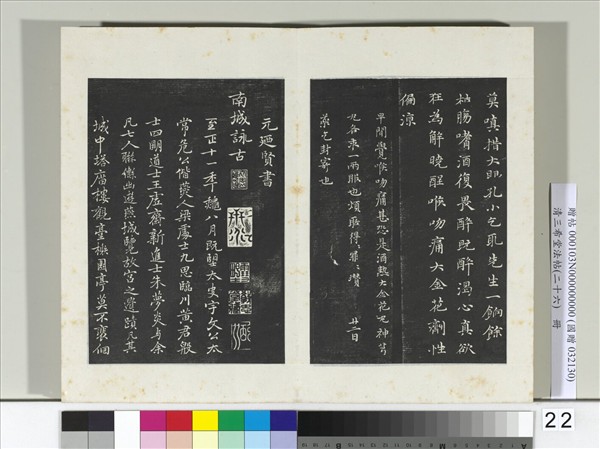 莫嗔措大眼孔小乞取先生一餉餘
枯腸嗜酒復畏醉既醉渴心真欲
狂為解曉酲喉吻痛大金花劑性
偏涼
早間覺喉吻痛甚恐是酒熱大金花丸神芎
丸各求一兩服也煩聒得罪得罪
廿二日
藥乞封寄也
元迺賢書
南城詠古
至正十一年秋八月既望太史宇文公太
常危公偕燕人梁處士九思臨川黃君殷
士四明道士王虛齋新進士朱夢炎與余
凡七人聯轡出遊燕城覽故宮之遺蹟凡其
城中塔廟樓觀臺榭園亭莫不裴徊
贈帖 000103N000000000 (國贈 032130)
清三希堂法帖(二十六) 冊
22